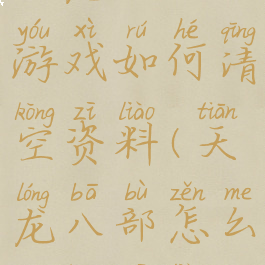 yóu xì rú hé qīng
游戏如何清
kōng zī liào tiān
空资料(天
lóng bā bù zěn me
龙八部怎么